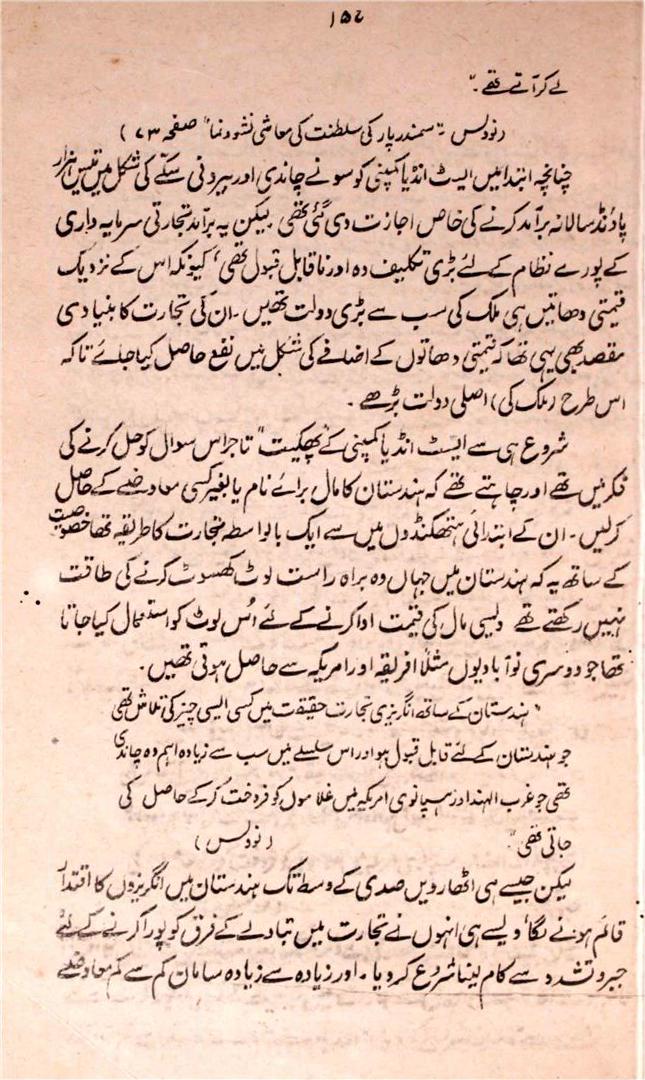 ۱۵۲
لے کر آتے تھے۔"
(نودلس "سمندر پار کی سلطنت کی معاشی نشوونما" صفحہ ۷۳)
چنانچہ ابتدا میں ایسٹ انڈیا کمپنی کو سونے چاندی اور بیرونی سکّے کی شکل میں تیس ہزار
پاؤنڈ سالانہ برآمد کرنے کی خاص اجازت دی گئی تھی لیکن یہ برآمد تجارتی سرمایہ داری
کے پورے نظام کے لئے بڑی تکلیف دہ اور ناقابل قبول تھی، کیونکہ اس کے نزدیک
قیمتی دھاتیں ہی ملک کی سب سے بڑی دولت تھیں۔ ان کی تجارت کا بنیادی
مقصد بھی یہی تھا کہ قیمتی دھاتوں کے اضافے کی شکل میں نفع حاصل کیا جائے تاکہ
اس طرح (ملک کی) اصلی دولت بڑھے۔
شروع ہی سے ایسٹ انڈیا کمپنی کے "پھکیت" تاجر اس سوال کو حل کرنے کی
فکر میں تھے اور چاہتے تھے کہ ہندستان کا مال برائے نام یا بغیر کسی معاوضے کے حاصل
کرلیں۔ ان کے ابتدائی ہتھکنڈوں میں سے ایک بالواسطہ تجارت کا طریقہ تھا خصوصیت
کے ساتھ یہ کہ ہندستان میں جہاں وہ براہ راست لوٹ کھسوٹ کرنے کی طاقت
نہیں رکھتے تھے دیسی مال کی قیمت ادا کرنے کے لئے اُس لوٹ کو استعمال کیا جاتا
تھا جو دوسری نوآبادیوں مثلاً افریقہ اور امریکہ سے حاصل ہوتی تھیں۔
"ہندستان کے ساتھ انگریزی تجارت حقیقت میں کسی ایسی چیز کی تلاش تھی
جو ہندستان کے لئے قابل قبول ہو اور اس سلسلے میں سب سے زیادہ اہم وہ چاندی
تھی جو غرب الہند اور ہسپانوی امریکہ میں غلاموں کو فروخت کرکے حاصل کی
جاتی تھی۔" (نودلس)
لیکن جیسے ہی اٹھارویں صدی کے وسط تک ہندستان میں انگریزوں کا اقتدار
قائم ہونے لگا، ویسے ہی انہوں نے تجارت میں تبادلے کے فرق کو پورا کرنے کے لئے
جبر و تشدد سے کام لینا شروع کر دیا۔ اور زیادہ سے زیادہ سامان کم سے کم معاوضے